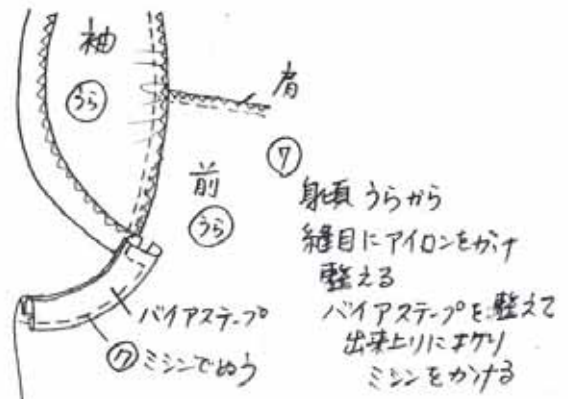 袖
うら
肩
⑦
前
うら
身頃 うらから
縫目にアイロンをかけ
整える
バイアステープを整えて
出来上りにオケリ
ミシンをかける
バイアステープ
⑦ミシンでぬう